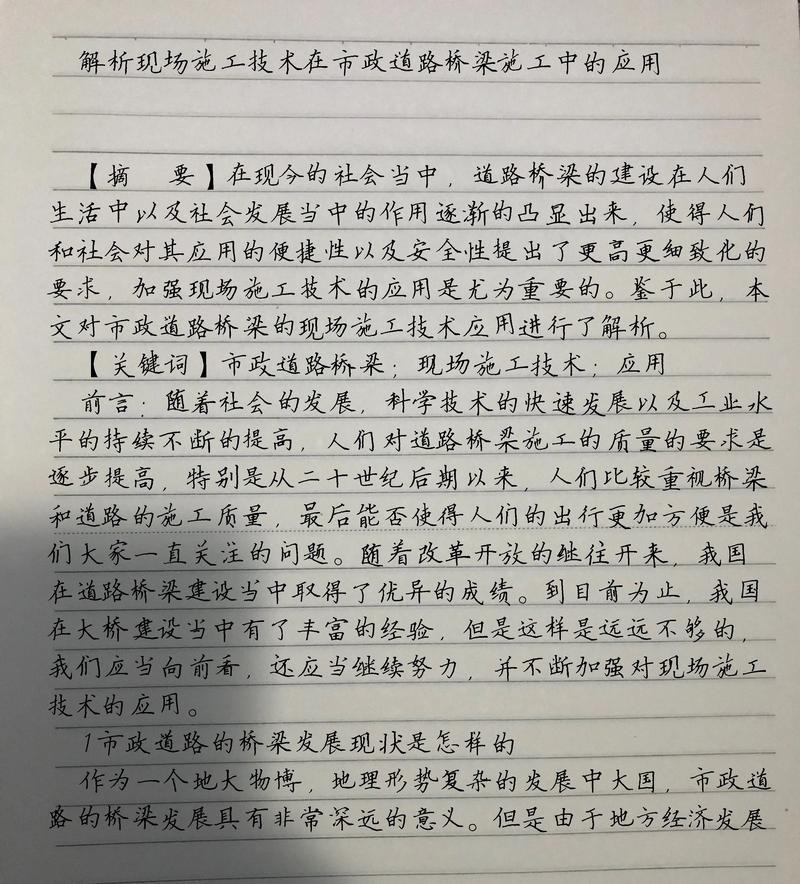 解析现场施工技术在市政道路桥梁施工中的应用
【摘 要】在现今的社会当中，道路桥梁的建设在人们
生活中以及社会发展当中的作用逐渐的凸显出来，使得人们
和社会对其应用的便捷性以及安全性提出了更高更细致化的
要求，加强现场施工技术的应用是尤为重要的。鉴于此，本
文对市政道路桥梁的现场施工技术应用进行了解析。
【关键词】市政道路桥梁；现场施工技术；应用
前言：随着社会的发展，科学技术的快速发展以及工业水
平的持续不断的提高，人们对道路桥梁施工的质量的要求是
逐步提高，特别是从二十世纪后期以来，人们比较重视桥梁
和道路的施工质量，最后能否使得人们的出行更加方便是我
们大家一直关注的问题。随着改革开放的继往开来，我国
在道路桥梁建设当中取得了优异的成绩。到目前为止，我国
在大桥建设当中有了丰富的经验，但是这样是远远不够的，
我们应当向前看，还应当继续努力，并不断加强对现场施工
技术的应用。
1市政道路的桥梁发展现状是怎样的
作为一个地大物博，地理形势复杂的发展中大国，市政道
路的桥梁发展具有非常深远的意义。但是由于地方经济发展